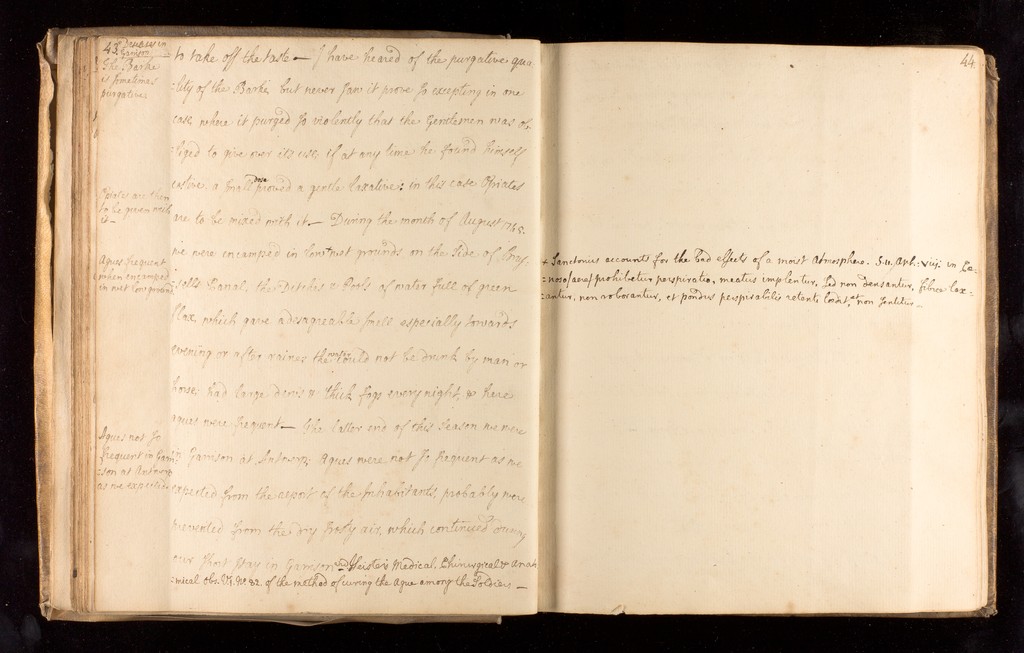 43. Diseases in
Garrison
The Barke
is sometimes
purgative
to take off the taste — I have heared of the purgative qua
:lity of the Barke, but never saw it prove so excepting in one
case where it purged so violently that the Gentlemen was ob
:liged to give over its use, if at any time he found himself
costive, a small dose proved a gentle laxative; in this case Opiates
are to be mixed with it — During the month of August 1745.
we were encamped in low wet grounds on the side of Brus
:sells Canal, the Ditches & Pools of water full of green
flax, which gave a desagreable smell especially towards
evening or after raines the water could not be drunk by man or
horse: had large dews & thick fogs every night, & here
agues were frequent — The latter end of this Season we were
in Garrison at Antwerp; Agues were not so frequent as we
expected from the aspect of the Inhabitants, probably were
prevented from the dry frosty air, which continued during
our short stay in Garrison vid Heister's Medical, Chirurgical & Anato
:mical Obs. No. 82. of the method of curing the Ague among the Soldiers —
Opiates are then
to be given with
it —
Agues frequent
when encamped
in wet low grounds
Agues not so
frequent in Garri
:son at Antwerp
as we expected
44.
+ Sanctorius accounts for the bad effects of a moist Atmosphere. Sec. Aph: viij. in Cœ:
:noso aere prohibetur perspiratio, meatus implentur, sed non densantur, fibræ lax:
:antur, non roborantur, et pondus perspirabilis retenti lædit, et non sentitur —